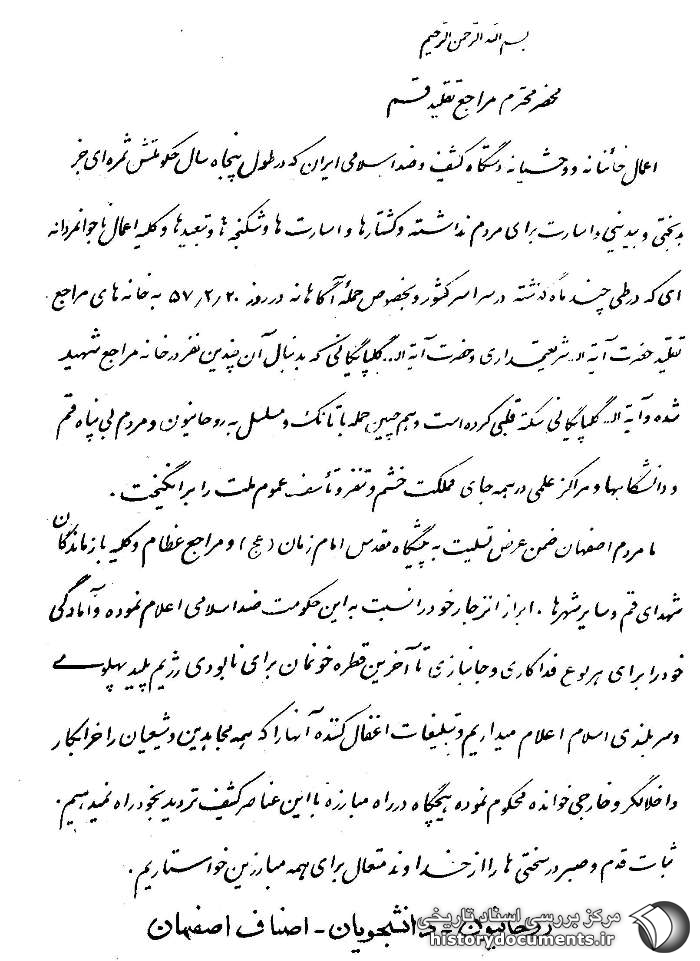 بسم الله الرحمن الرحیم
محضر محترم مراجع تقلید قم
اعمال خائنانه و وحشیانه دستگاه کثیف و ضد اسلامی ایران که در طول پنجاه سال حکومتش ثمره‌ای جز
بدبختی و بیدینی و اسارت برای مردم نداشته و کشتارها و اسارت ها و شکنجه ها و تبعیدها و کلیه اعمال ناجوانمردانه
ای که در طی چند ماه گذشته در سراسر کشور و بخصوص حمله آگاهانه در روز ۵۷/۲/۲۰ به خانه های مراجع
تقلید حضرت آیة ال... شریعتمداری و حضرت آیة ال... گلپایگانی که بدنبال آن چندین نفر در خانه مراجع شهید
شده و آیة ال... گلپایگانی سکته قلبی کرده است و همچنین حمله با تانک و مسلسل به روحانیون و مردم بی پناه قم
و دانشگاهها و مراکز علمی در همه جای مملکت خشم و تنفر و تأسف عموم ملت را برانگیخت .
ما مردم اصفهان ضمن عرض تسلیت به پیشگاه مقدس امام زمان (عج) و مراجع عظام و کلیه بازماندگان
شهدای قم و سایر شهرها . ابراز انزجار خود را نسبت به این حکومت ضد اسلامی اعلام نموده و آمادگی
خود را برای هر نوع فداکاری و جانبازی تا آخرین قطره خونمان برای نابودی رژیم پلید پهلوی
و سربلندی اسلام اعلام میداریم و تبلیغات اغفال کننده آنها را که همه مجاهدین و شیعیان را خرابکار
و اخلالگر و خارجی خوانده محکوم نموده هیچگاه در راه مبارزه با این عناصر کثیف تردید بخود راه نمیدهیم .
ثبات قدم و صبر در سختی ها را از خداوند متعال برای همه مبارزین خواستاریم .
روحانیون - دانشجویان - اصناف اصفهان
مرکز بررسی اسناد تاریخی
historydocuments.ir